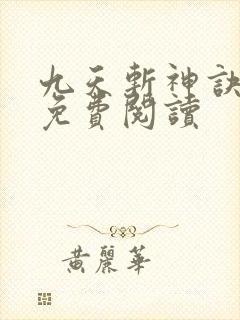 九天斬神訣
免費閱讀
黃麗華